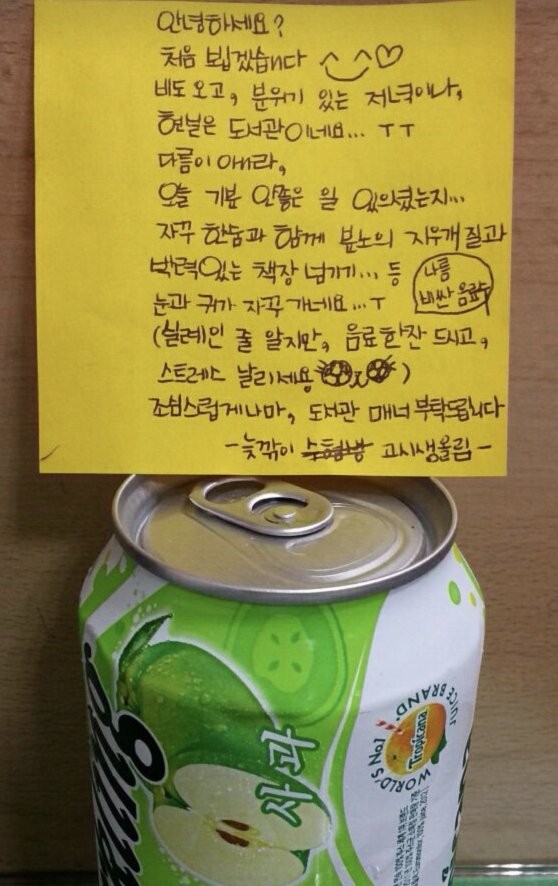 안녕하세요?
처음 뵙겠습니다 ^‿^♡
비도 오고, 분위기 있는 저녁이나,
현실은 도서관이네요... ㅜㅜ
다름이 아니라,
오늘 기분 안좋은 일 있으셨는지...
자꾸 한숨과 함께 분노의 지우개질과
박력있는 책장 넘기기... 등
눈과 귀가 자꾸 가네요...ㅜ
나름
비싼 음료수
(실례인 줄 알지만, 음료한잔 드시고,
스트레스 날리세용)
조심스럽게나마, 도서관 매너 부탁드립니다
-늦깎이 수험생 고시생올림-
사과
Tropicana
WORLD'S No.1
JUICE BRAND.